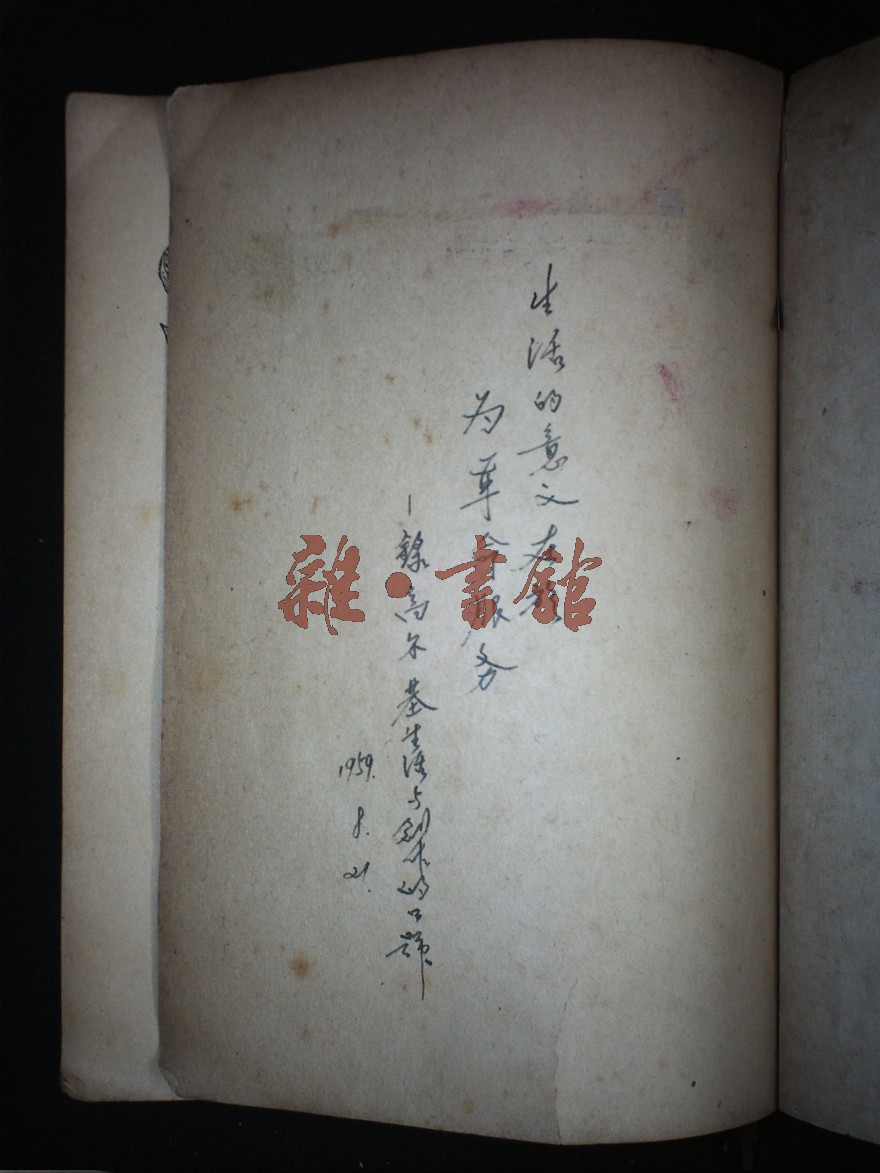 生活的意义在於
为革命服务
—錄高尔基生活与創作的口號
1959.8.21.
雜·書館